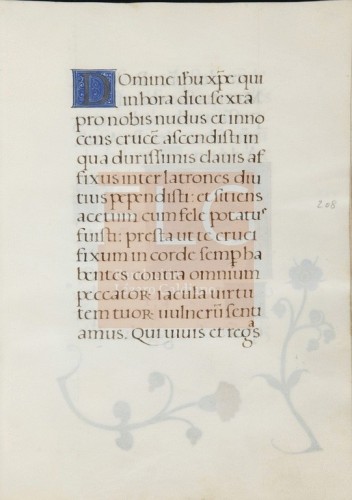 Domine ihu xpe qui
in hora diei sexta
pro nobis nudus et inno
cens crucē ascendisti in
qua durissimis clavis af
fixus inter latrones diu
tius pependisti: et sitiens
acetum cum fele potatus
fuisti: presta ut te cruci
fixum in corde semp ha
bentes contra omnium
peccator iacula virtu
tem tuor vulnerū senti
amus. Qui vivis et regs
208